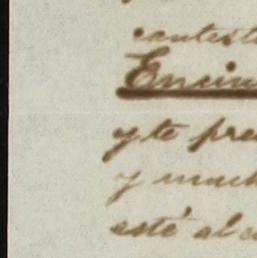 contest
Encin
y te pre
y much
esté al c